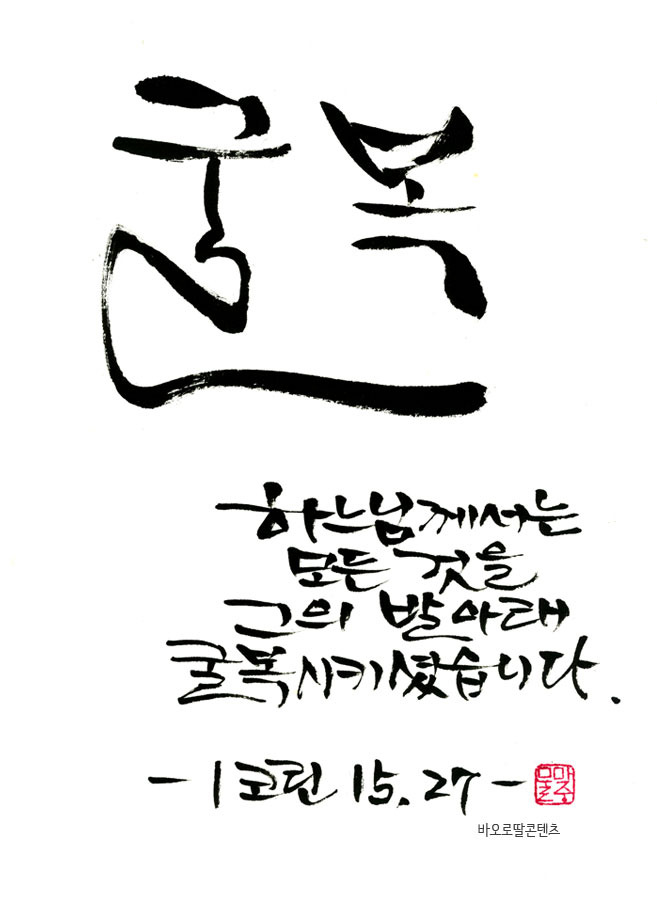 굴복
하느님께서는
모든 것을
그의 발아래
굴복시키셨습니다.
-1코린 15,27-
바오로딸콘텐츠